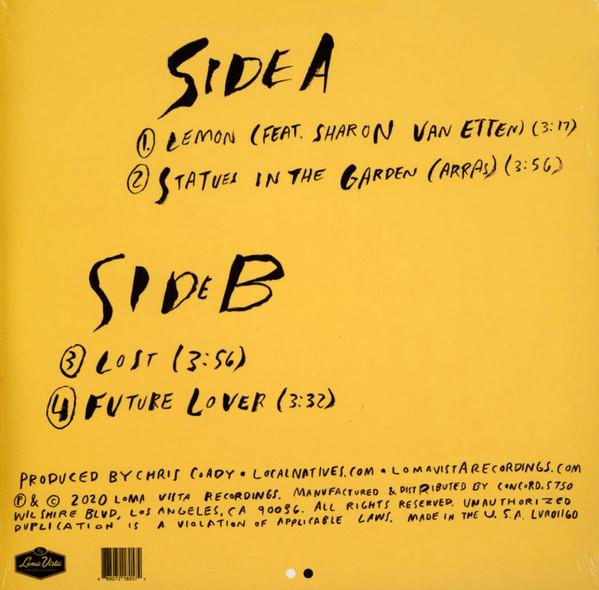 SIDE A
1. LEMON (FEAT. SHARON VAN ETTEN) (3:17)
2 STATUES IN THE GARDEN (ARRAS) (3:56)
SIDE B
3 LOST (3:56)
4 FUTURE LOVER (3:32)
PRODUCED BY CHRIS COADY • LOCALNATIVES.COM • LOMAVISTARECORDINGS.COM
℗ & © 2020 LOMA VISTA RECORDINGS. MANUFACTURED & DISTRIBUTED BY CONCORD. 5750
WILSHIRE BLVD, LOS ANGELES, CA 90036. ALL RIGHTS RESERVED. UNAUTHORIZED
DUPLICATION IS A VIOLATION OF APPLICABLE LAWS. MADE IN THE U.S.A. LVR01160
Loma Vista